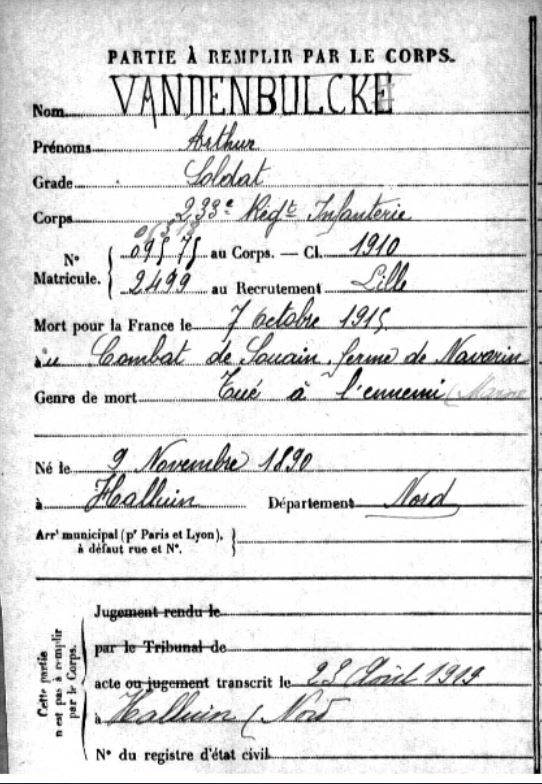 PARTIE À REMPLIR PAR LE CORPS.
Nom VANDENBULCKE
Prénoms Arthur
Grade Soldat
Corps 233e Régt Infanterie
N° Matricule. { 09575 au Corps. — Cl. 1910
2499 au Recrutement Lille
Mort pour la France le 7 Octobre 1915
au Combat de Souain. ferme de Navarin
Genre de mort Tué à l'ennemi (Marne
Né le 9 Novembre 1890
à Halluin Département Nord
Arrt municipal (pr Paris et Lyon), }
à défaut rue et N°.
Cette partie n'est pas à remplir par le Corps.
Jugement rendu le
par le Tribunal de
acte ou jugement transcrit le Août 1919
à Halluin (Nord
N° du registre d'état civil